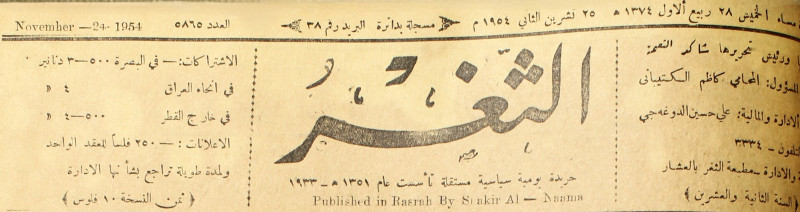 مساء الخميس ٢٨ ربيع الاول ١٣٧٤ هـ ٢٥ تشرين الثاني ١٩٥٤ م
مسجلة بدائرة البريد رقم ٣٨
العدد ٥٨٦٥
November —24- 1954
ورئيس تحريرها شاكر النعمة
المسؤول: المحامي كاظم السكيتياني
الادارة والمالية: علي حسين الدوغه جي
تلفون — ٣٣٣٤
والادارة — مطبعة الثغر بالعشار
﴿ السنة الثانية والعشرين ﴾
الثغر
جريدة يومية سياسية مستقلة تأسست عام ١٣٥١ هـ — ١٩٣٣
Published in Basrah By Shakir Al — Naama
الاشتراكات: — في البصرة ٥٠٠—٣ دنانير
في انحاء العراق ٤ »
في خارج القطر ٥٠٠—٤ »
الاعلانات: — ٢٥٠ فلساً للعقد الواحد
ولمدة طويلة تراجع بشأنها الادارة
﴿ ثمن النسخة ١٠ فلوس ﴾